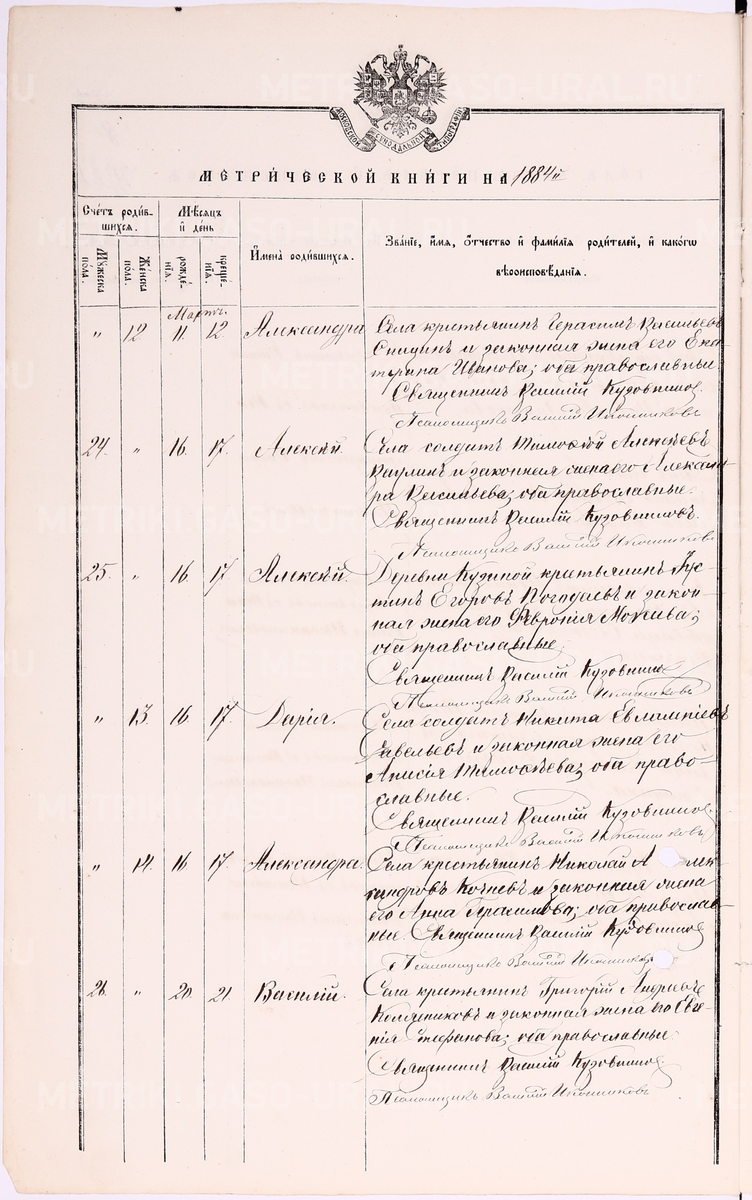 МОСКОВСКОЙ СѴНОДАЛЬНОЙ ТИПОГРАФІИ
МЕТРИ́ЧЕСКОЙ КНИ́ГИ НА 1884й
Счётъ роди́вшихся.
Мѣ́сяцъ и҆ де́нь
И҆мена̀ роди́вшихся.
Зва́нїе, и҆́мя, ѻ҆́тчество и҆ фами́лїя роди́телей, и҆ како́гѡ
вѣроисповѣ́данїя.
Мꙋ́жеска по́ла.
Же́нска по́ла.
рожде́нїя.
креще́нїя.
Мартъ.
" 12 11. 12. Александра
Села крестьянинъ Герасимъ Васильевъ
Спицинъ и законная жена его Ека-
терина Иванова; оба православные.
Священникъ Василій Кузовниковъ.
Псаломщикъ Василій Иконниковъ
24. " 16. 17. Алексѣй.
Села солдатъ Тимоѳей Алексѣевъ
и законная жена его Александ-
ра Васильева; оба православные.
Священникъ Василій Кузовниковъ.
Псаломщикъ Василій Иконниковъ
25. " 16 17 Алексѣй.
Деревни Кузиной крестьянинъ Іус-
тинъ Егоровъ Погадаевъ и закон-
ная жена его Ѳевронія Мокѣева;
оба православные.
Священникъ Василій Кузовниковъ
Псаломщикъ Василій Иконниковъ
" 13. 16 17. Дарія.
Села солдатъ Никита Евлампіевъ
Савельевъ и законная жена его
Анисія Тимоѳеева; оба право-
славные.
Священникъ Василій Кузовниковъ.
Псаломщикъ Василій Иконниковъ
" 14. 16 17. Александра.
Села крестьянинъ Николай Алек-
сандровъ Кочневъ и законная жена
его Анна Герасимова; оба православ-
ные. Священникъ Василій Кузовниковъ
Псаломщикъ Василій Иконниковъ
26. " 20. 21. Василій.
Села крестьянинъ Григорій Андреевъ
и законная жена его Евге-
нія Стефанова; оба православные.
Священникъ Василій Кузовниковъ.
Псаломщикъ Василій Иконниковъ